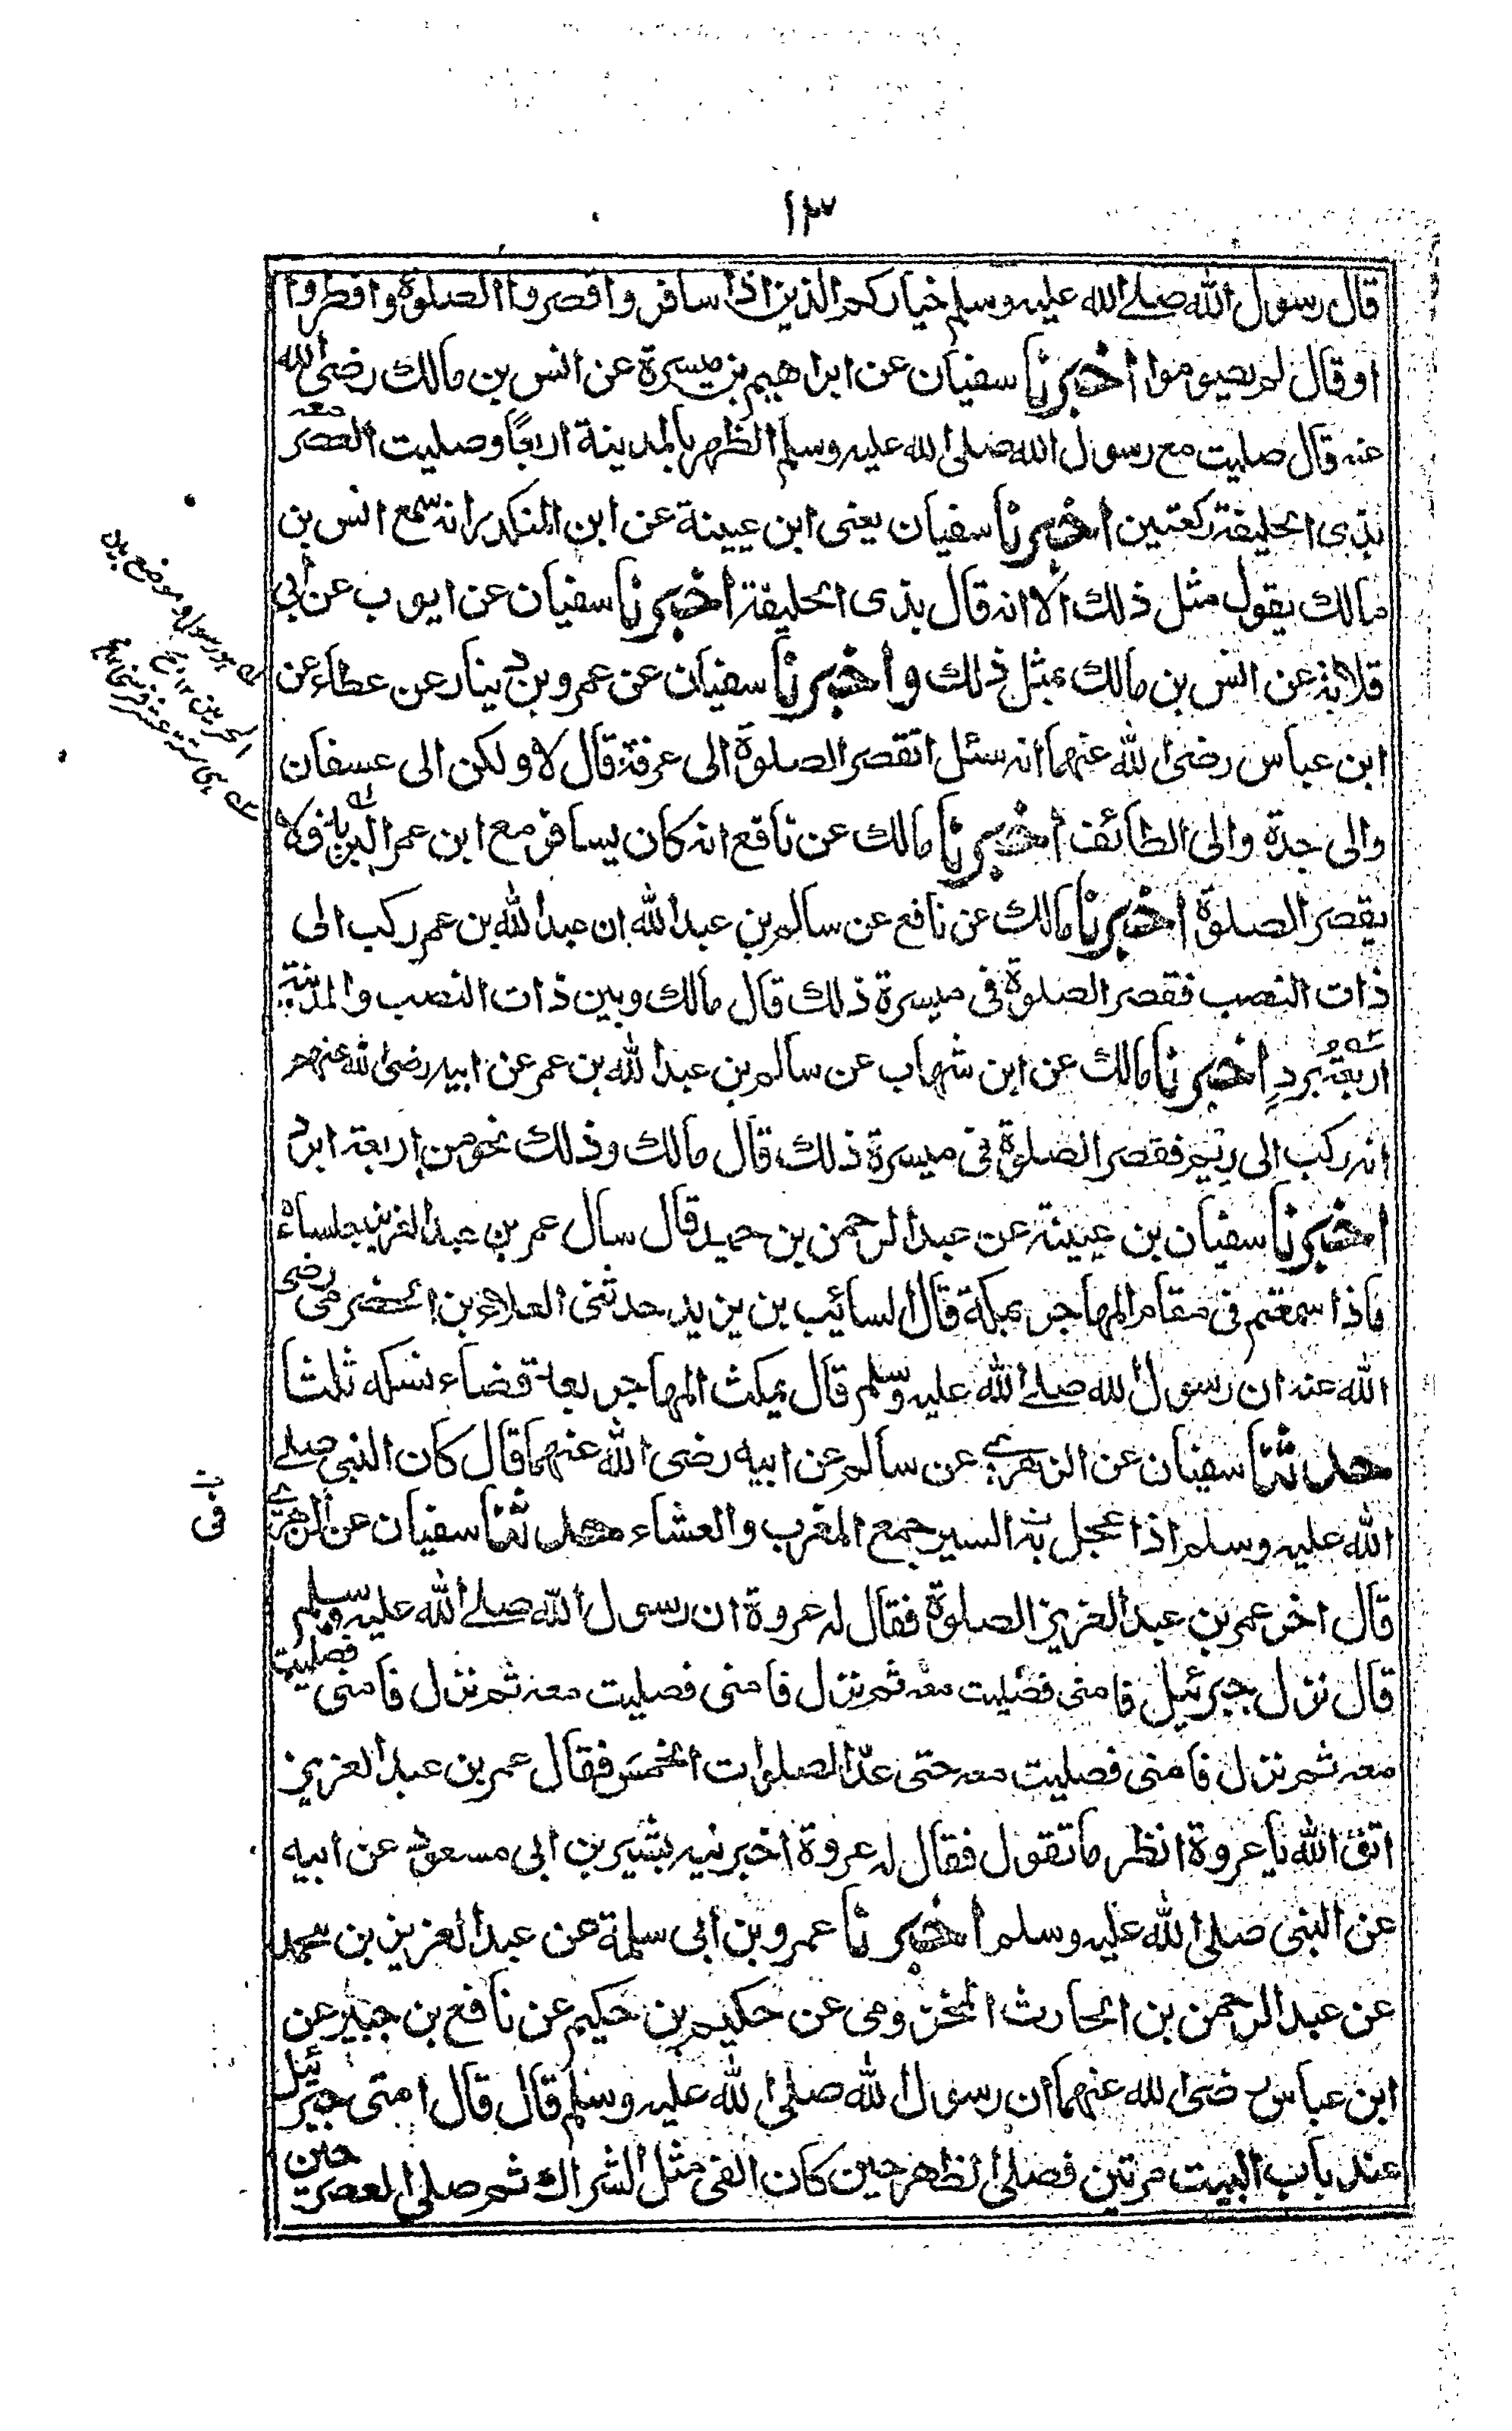 ١٣
قال رسول الله صلے الله عليه وسلم خياركم الذين اذا سافروا قصروا الصلوة وافطروا
او قال لم يصوموا اخبرنا سفيان عن ابراهيم بن ميسرة عن انس بن مالك رضى الله
عنه قال صليت مع رسول الله صلى الله عليه وسلم الظهر بالمدينة اربعًا وصليت معه العصر
بذى الحليفة ركعتين اخبرنا سفيان يعنى ابن عيينة عن ابن المنكدر انه سمع انس بن
مالك يقول مثل ذلك الا انه قال بذى الحليفة اخبرنا سفيان عن ايوب عن أبي
قلابة عن انس بن مالك بمثل ذلك واخبرنا سفيان عن عمرو بن دينار عن عطاء عن
ابن عباس رضى الله عنهما انه سئل اتقصر الصلوة الى عرفة قال لا ولكن الى عسفان
والى جدة والى الطائف اخبرنا مالك عن نافع انه كان يسافر مع ابن عمر البريد فلا
يقصر الصلوة اخبرنا مالك عن نافع عن سالم بن عبد الله ان عبد الله بن عمر ركب الى
ذات النصب فقصر الصلوة فى ميسرة ذلك قال مالك وبين ذات النصب والمدينة
اربعة برد اخبرنا مالك عن ابن شهاب عن سالم بن عبد الله بن عمر عن ابيه رضى الله عنهم
انه ركب الى ريم فقصر الصلوة فى ميسرة ذلك قال مالك وذلك نحو من اربعة ابرد
اخبرنا سفيان بن عيينة عن عبد الرحمن بن حميد قال سال عمر بن عبد العزيز جلساءه
ماذا سمعتم فى مقام المهاجر بمكة قال السائب بن يزيد حدثنى العلاء بن الحضرمى رضى
الله عنه ان رسول الله صلے الله عليه وسلم قال يمكث المهاجر بعد قضاء نسكه ثلثا
حدثنا سفيان عن الزهرے عن سالم عن ابيه رضى الله عنهما قال كان النبى صلے
الله عليه وسلم اذا عجل به السير جمع المغرب والعشاء حدثنا سفيان عن الزهرے
فى
قال اخر عمر بن عبد العزيز الصلوة فقال له عروة ان رسول الله صلے الله عليه وسلم
قال نزل جبرئيل فامنى فصليت معه ثم نزل فامنى فصليت معه ثم نزل فامنى فصليت
معه ثم نزل فامنى فصليت معه حتى عدّ الصلوات الخمس فقال عمر بن عبد العزيز
اتق الله يا عروة انظر ما تقول فقال له عروة اخبرنيه بشير بن ابى مسعود عن ابيه
عن النبى صلى الله عليه وسلم اخبرنا عمرو بن ابى سلمة عن عبد العزيز بن محمد
عن عبد الرحمن بن الحارث المخزومى عن حكيم بن حكيم عن نافع بن جبير عن
ابن عباس رضى الله عنهما ان رسول الله صلى الله عليه وسلم قال قال امنى جبرئيل
عند باب البيت مرتين فصلى الظهر حين كان الفى مثل الشراك ثم صلى العصر حين